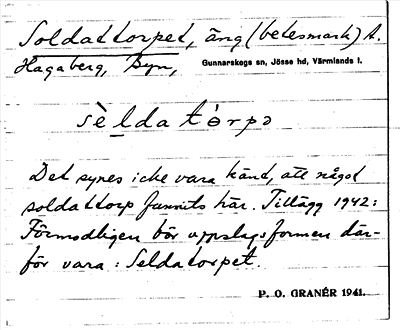 Soldattorpet, äng (betesmark) t.
Hagaberg, Byn, Gunnarskogs sn, Jösse hd, Värmlands l.
sèlda tòrpə
Det synes icke vara känt, att något
soldattorp funnits här. Tillägg 1942:
Förmodligen bör uppslagsformen där-
för vara: Seldatorpet.
P. O. GRANÉR 1941.